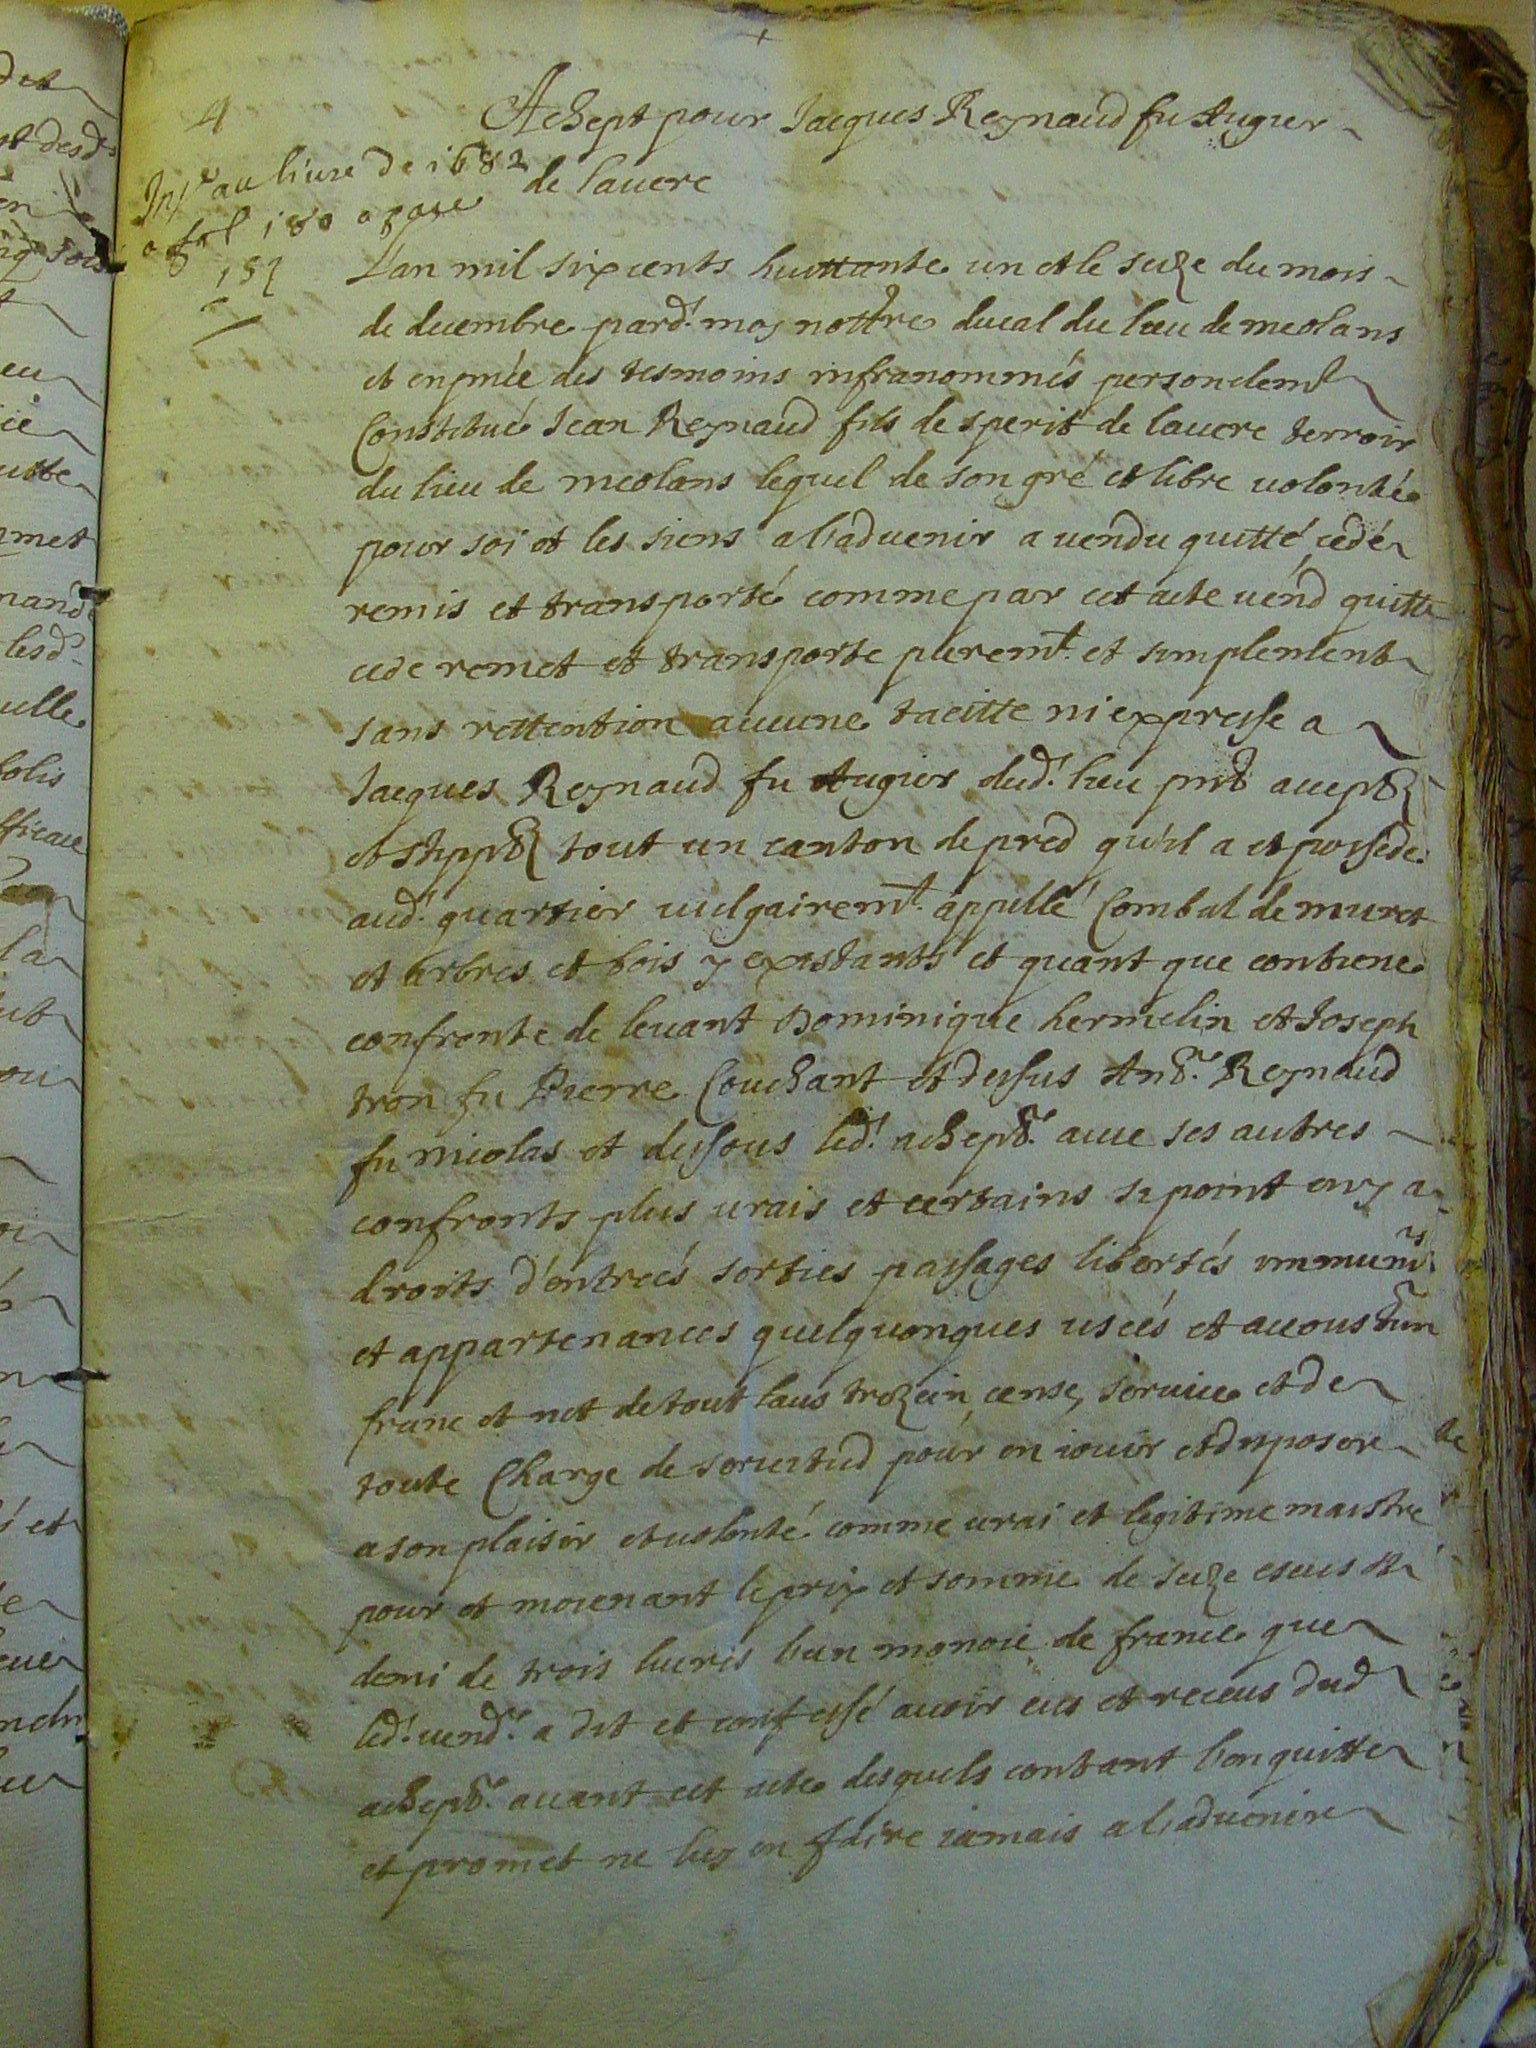 4
Achept pour Jacques Reynaud fu Augier
de lauere
Ins.e au liure de 1682
a fol 180
L'an mil six cents huittante un et le seize du mois
de decembre pard.t moy nottre ducal du lieu de meolans
et en pñce des tesmoins infranommés personelem.t
Constitué Jean Reynaud fils de sperit de lauere terroir
du lieu de meolans lequel de son gré et libre uolonté
pour soi et les siens a l'aduenir a uendu quitté cedé
remis et transporté comme par cet acte uend quitte
cede remet et transporte plerem.t et simplement
sans rettention aucune tacitte ni expresse a
Jacques Reynaud fu Augier dud.t lieu pnt accept
et stippt tout un canton de pred qu'il a et possede
aud.t quartier uulgairem.t appellé Combal de muret
et arbres et bois y existants et quant que contiene
confronte de leuant Dominique hermelin et Joseph
tron fu Pierre Couchant et dessus And.e Reynaud
fu nicolas et dessous led.t achept.r auec ses autres
confronts plus urais et certains si point en y a
droits d'entreés sorties passages libertés immunis
et appartenances quelquonques useés et accoustum
franc et net de tout laus trezein cense, seruice et de
toute Charge de seruitud pour en iouir et disposere
a son plaisir et uolonté comme urai et legitime maistre
pour et moienant le prix et somme de seize escus et
demi de trois liures l'un monoie de france que
led.t uend.r a dit et confessé auoir eus et receus dud
achept.r auant cet acte desquels contant l'en quitte
et promet ne luy en faire iamais a l'aduenire